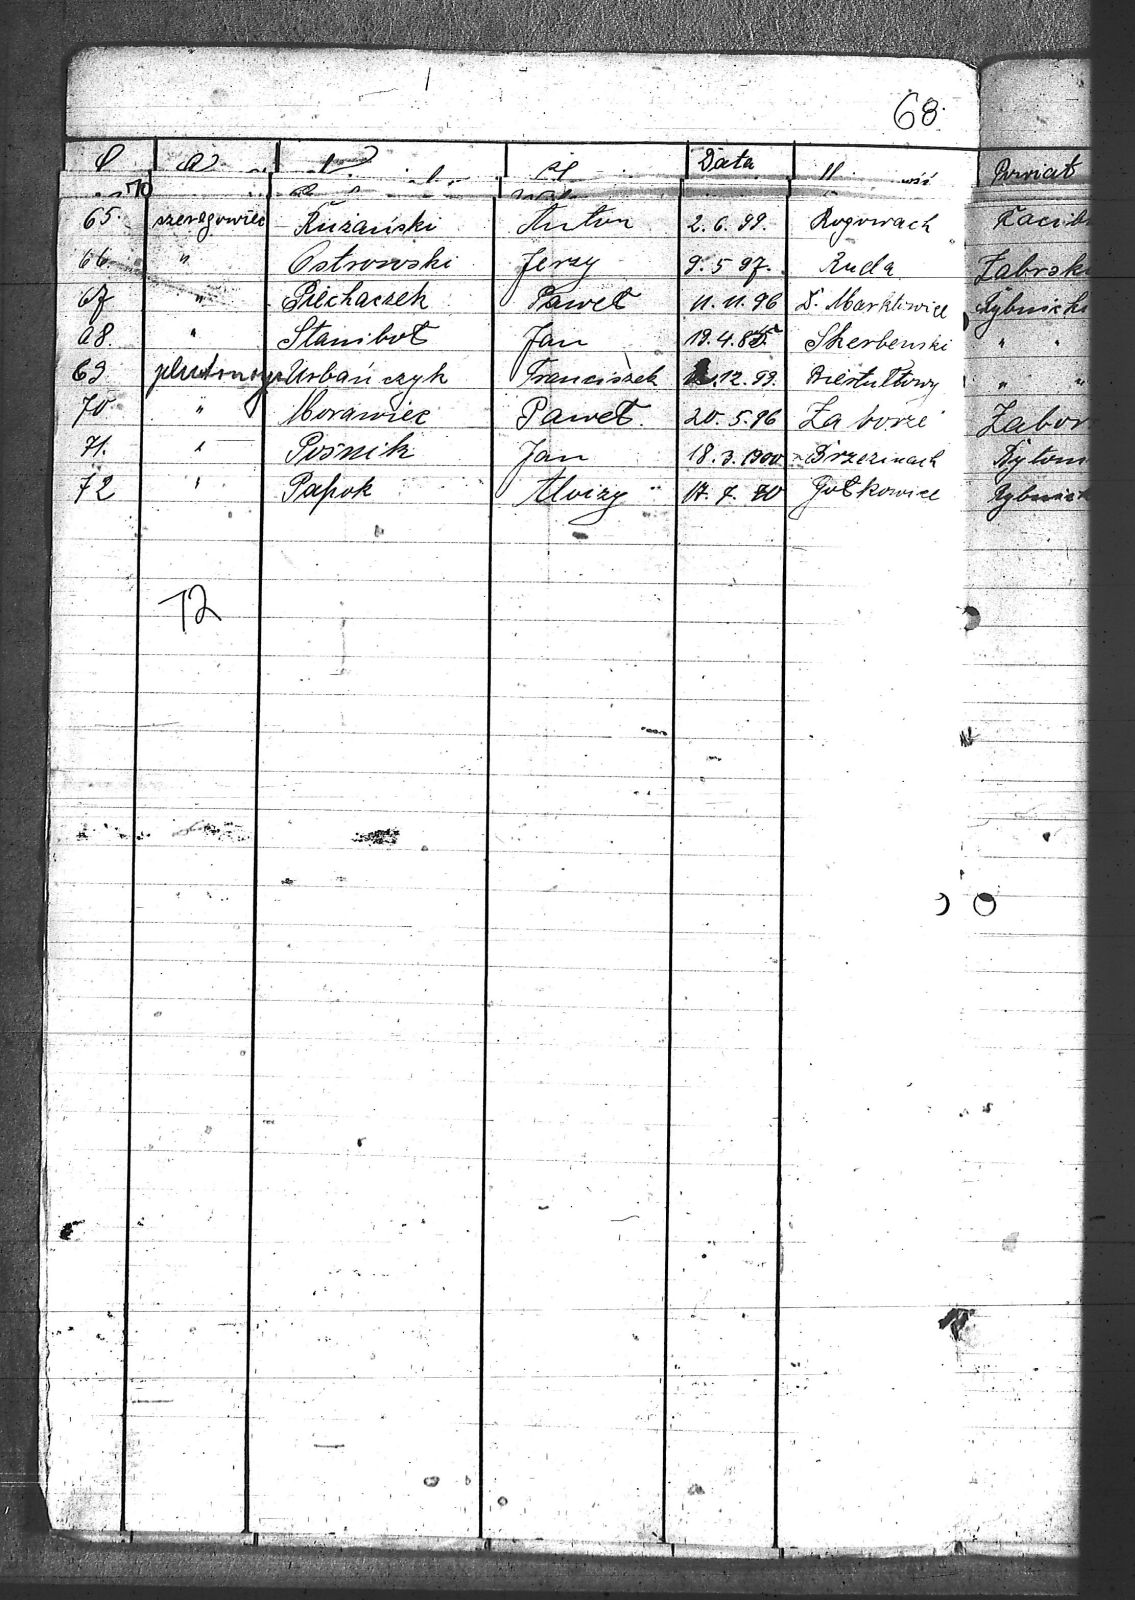 68
Data Powiat
65. szeregowiec Rużański Anton 2.6.99. Rogowach Racib
66. " Ostrowski Jerzy 9.5 97. Ruda Zabrski
67 " Piechaczek Paweł 11.11.96 D. Marklowice Rybnicki
68. " Stanibot Jan 19.4.85 Skerbenski " "
69 Urbańczyk Franciszek .12.99. Biertułtowy " "
70 " Morawiec Paweł. 20.5.96 Zaborze Zabor
71. " Pośnik Jan 18.3.1900 Brzezinach Bytom
72 " Papok Aloizy Gołkowice Rybnick
72